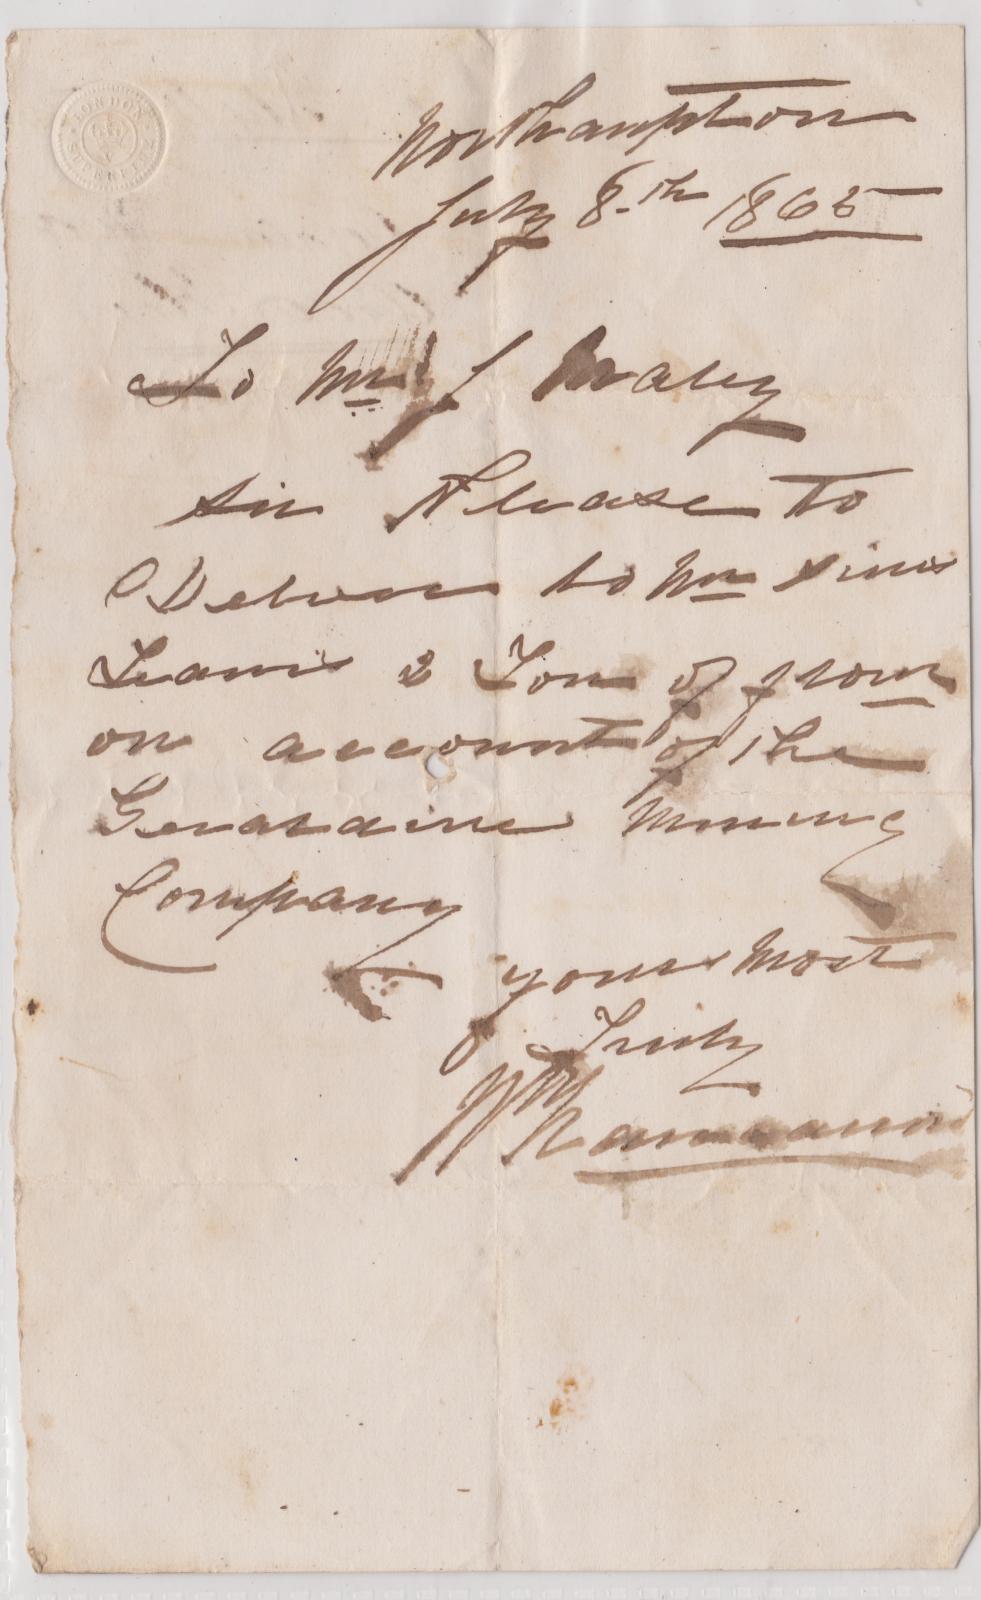 LONDON
SUPERFINE
Northampton
July 8.th 1865
To Mr J Maley
Sir Please to
Deliver to Mr Sims
Teams 2 Ton of flour
on account of the
Geraldine Mining
Company
yours Most
Truly
Wm